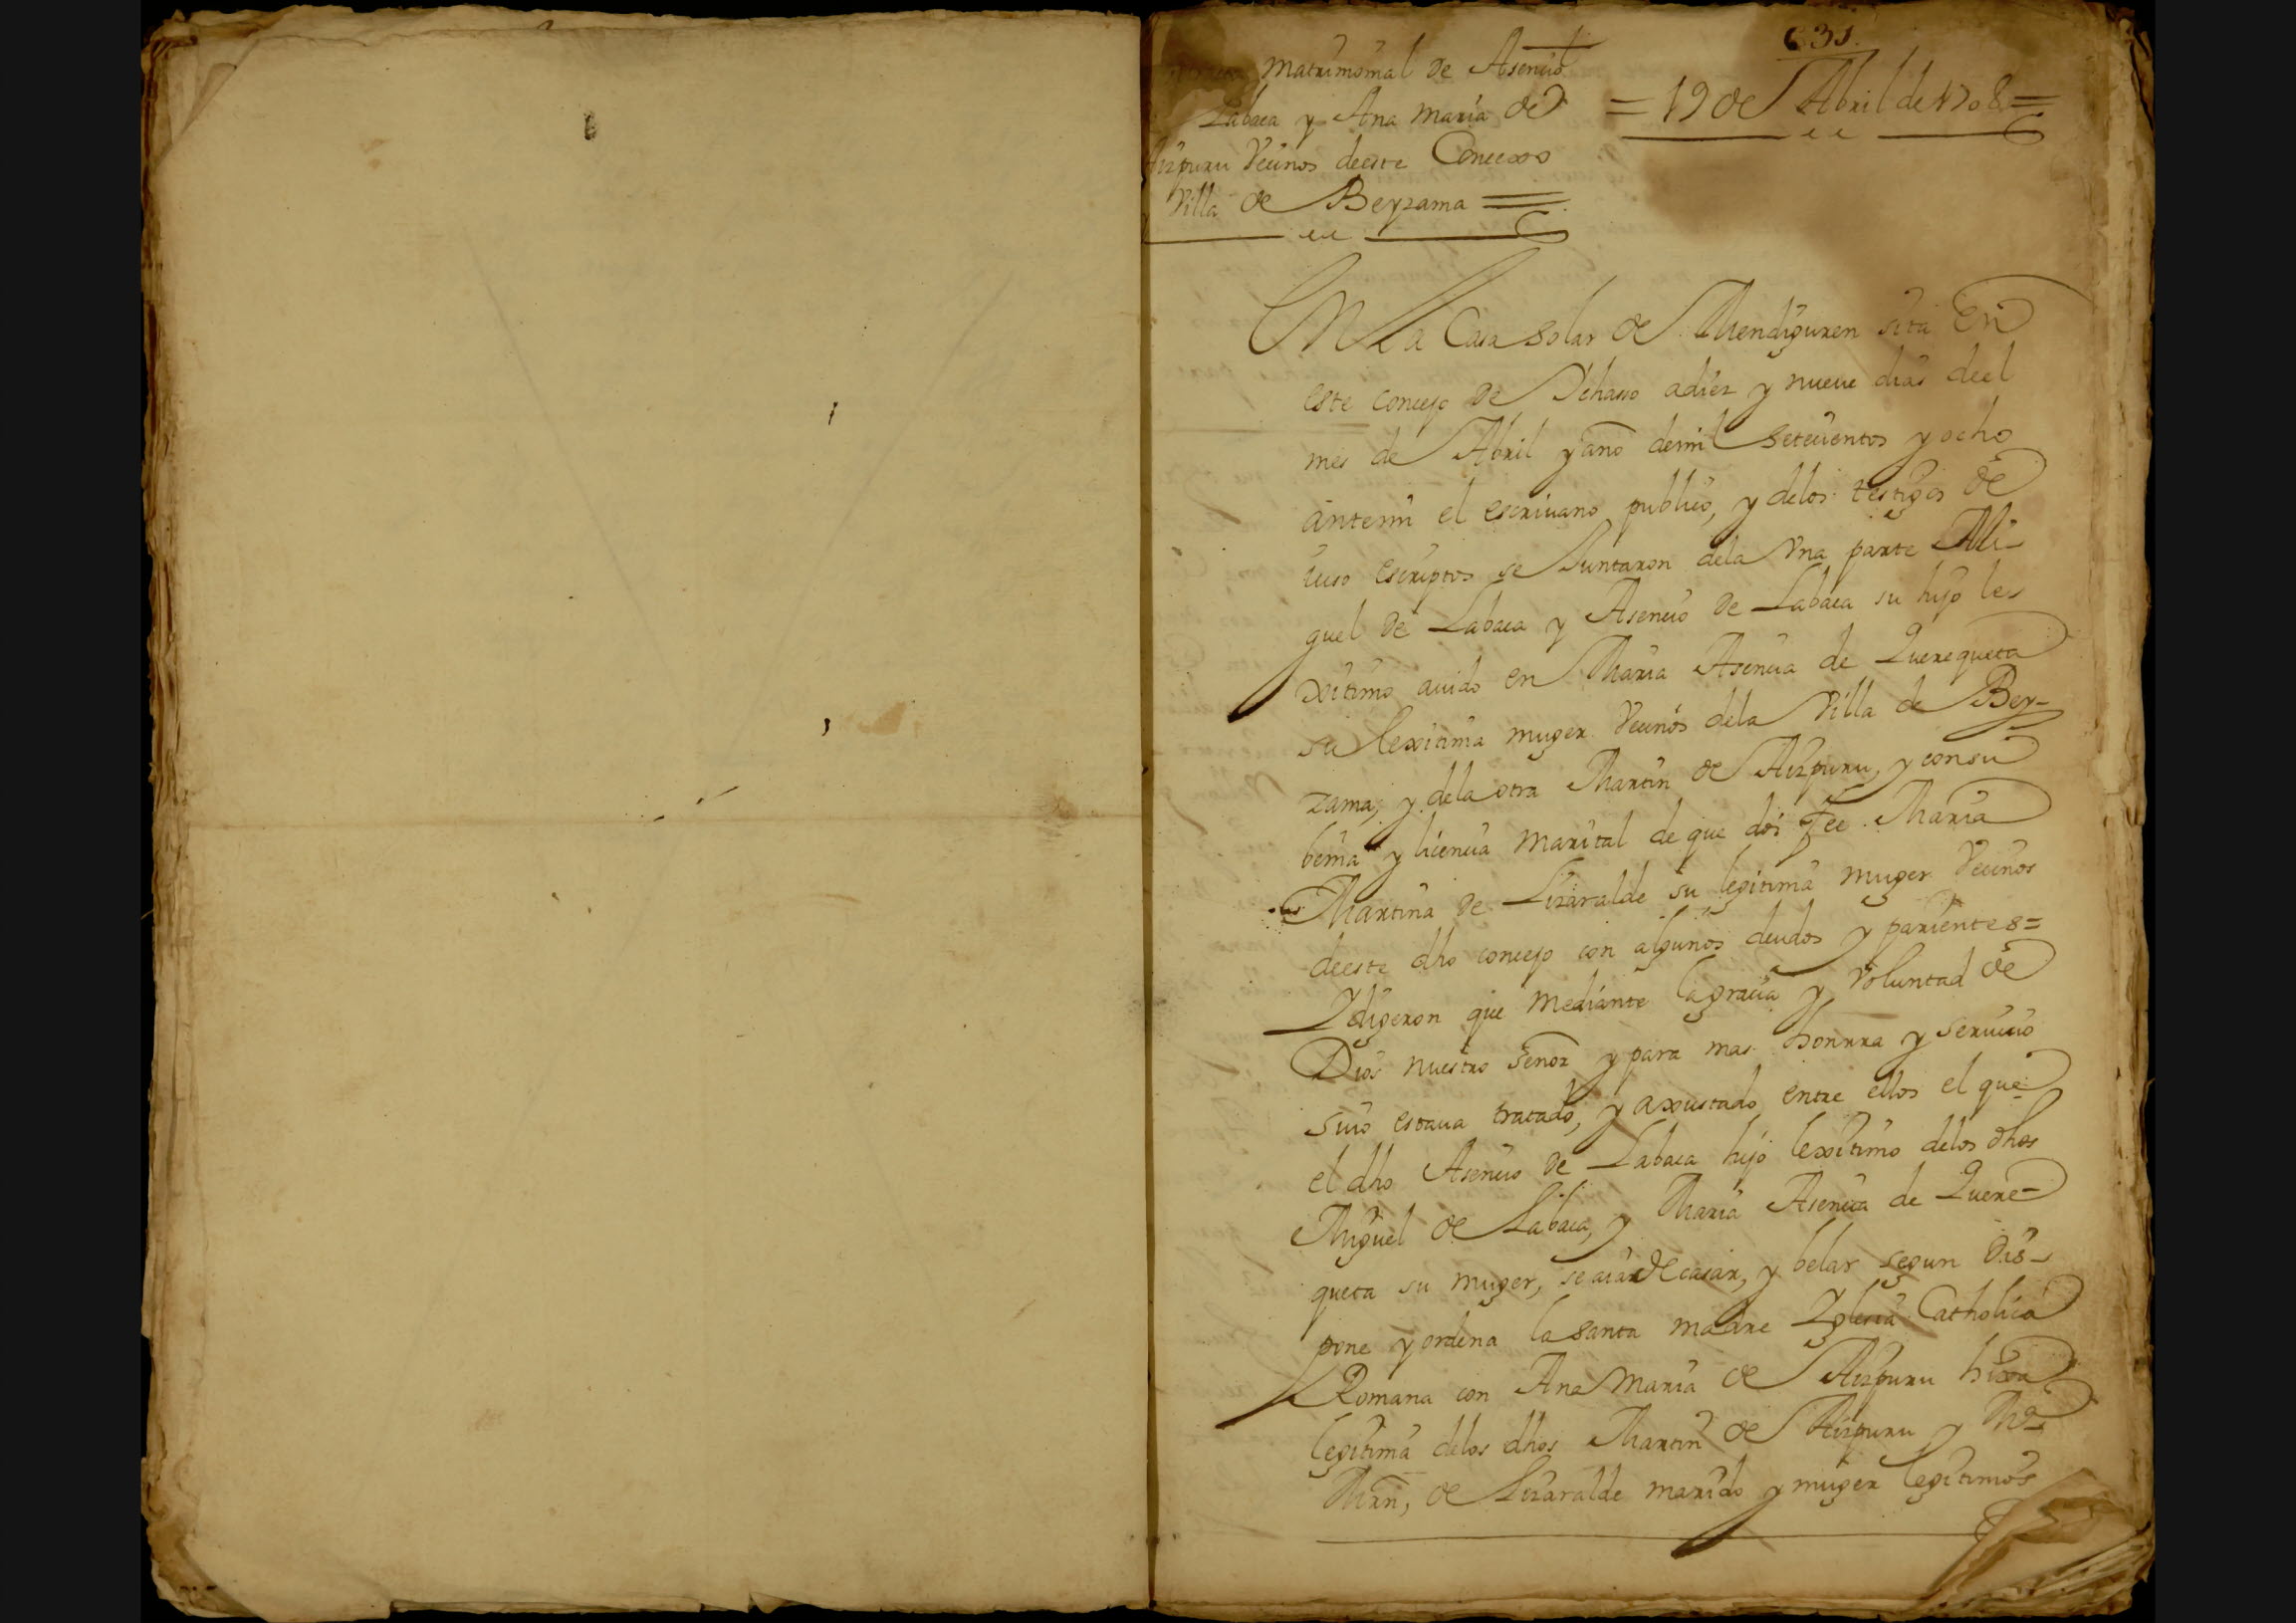 631.
matrimonial de Asencio
Labaca y Ana maria de
= 19 de Abril de 1708 =
Aizpuru Vecinos deeste Concexo
y Villa de Beyzama =
EN La Casa Solar de Mendiguren sita En
este concejo de Ichasso adiez y nueue dias deel
mes de Abril y año demil setecientos y ocho
antemi el escriuano publico, y delos testigos de
iuso escriptos se Juntaron dela Vna parte Mi-
guel de Labaca y Asencio de Labaca su hijo le-
xitimo auido en Maria Asencia de Querequeta
su lexitima muger Vecinos dela Villa de Bey-
zama, y dela otra Martin de Aizpuru, y consu
benia y licencia marital de que doi Fee Maria
Martina de Lizaralde su legitima muger Vecinos
deeste dho concejo con algunos deudos y parientes =
Y digeron que mediante la gracia y Voluntad de
Dios nuestro Señor y para mas honrra y seruicio
suio estaua tratado, y axustado entre ellos el que
el dho Asencio de Labaca hijo lexitimo delos dhos
Miguel de Labaca, y Maria Asencia de Quere-
queta su muger, se aia de casar, y belar segun Dis-
pone y ordena la santa madre Yglesia Catholica
Romana con Ana Maria de Aizpuru hixa
legitima delos dhos Martin de Aizpuru y Ma
Mrn, de Lizaralde marido y muger legitimos